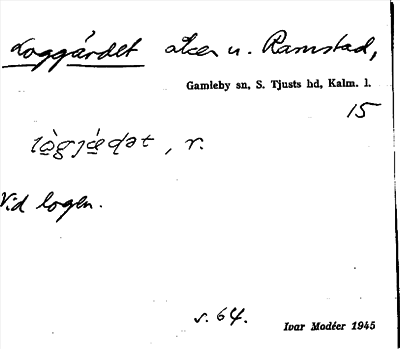 Loggärdet åker u. Ramstad,
Gamleby sn, S. Tjusts hd, Kalm. l.
15
r.
Vid logen.
s. 64.
Ivar Modéer 1945